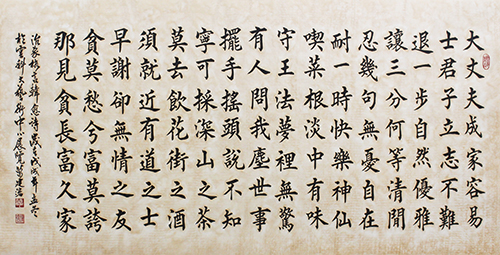 大丈夫成家容易
士君子立志不難
退一步自然優雅
讓三分何等清閒
忍幾句無憂自在
耐一時快樂神仙
喫菜根淡中有味
守王法夢裡無驚
有人問我塵世事
擺手搖頭說不知
寧可採深山之茶
莫去飲花街之酒
須就近有道之士
早謝卻無情之友
貪莫愁兮富莫誇
那見貪長富久家
治家格言